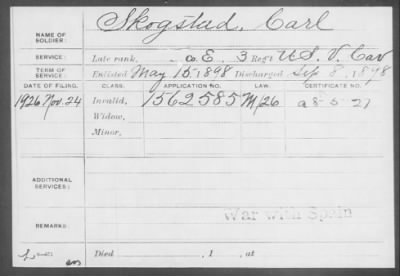 NAME OF SOLDIER: Skogstad, Carl
SERVICE: Late rank, Co E, 3 Reg't U.S. V. Cav
TERM OF SERVICE: Enlisted May 15, 1898 Discharged Sep 8, 1898
DATE OF FILING. CLASS. APPLICATION NO. LAW. CERTIFICATE NO.
1926 Nov. 24 Invalid, 1562585 a 8-5-27
Widow,
Minor,
ADDITIONAL SERVICES:
War with Spain
REMARKS:
Died , 1 , at